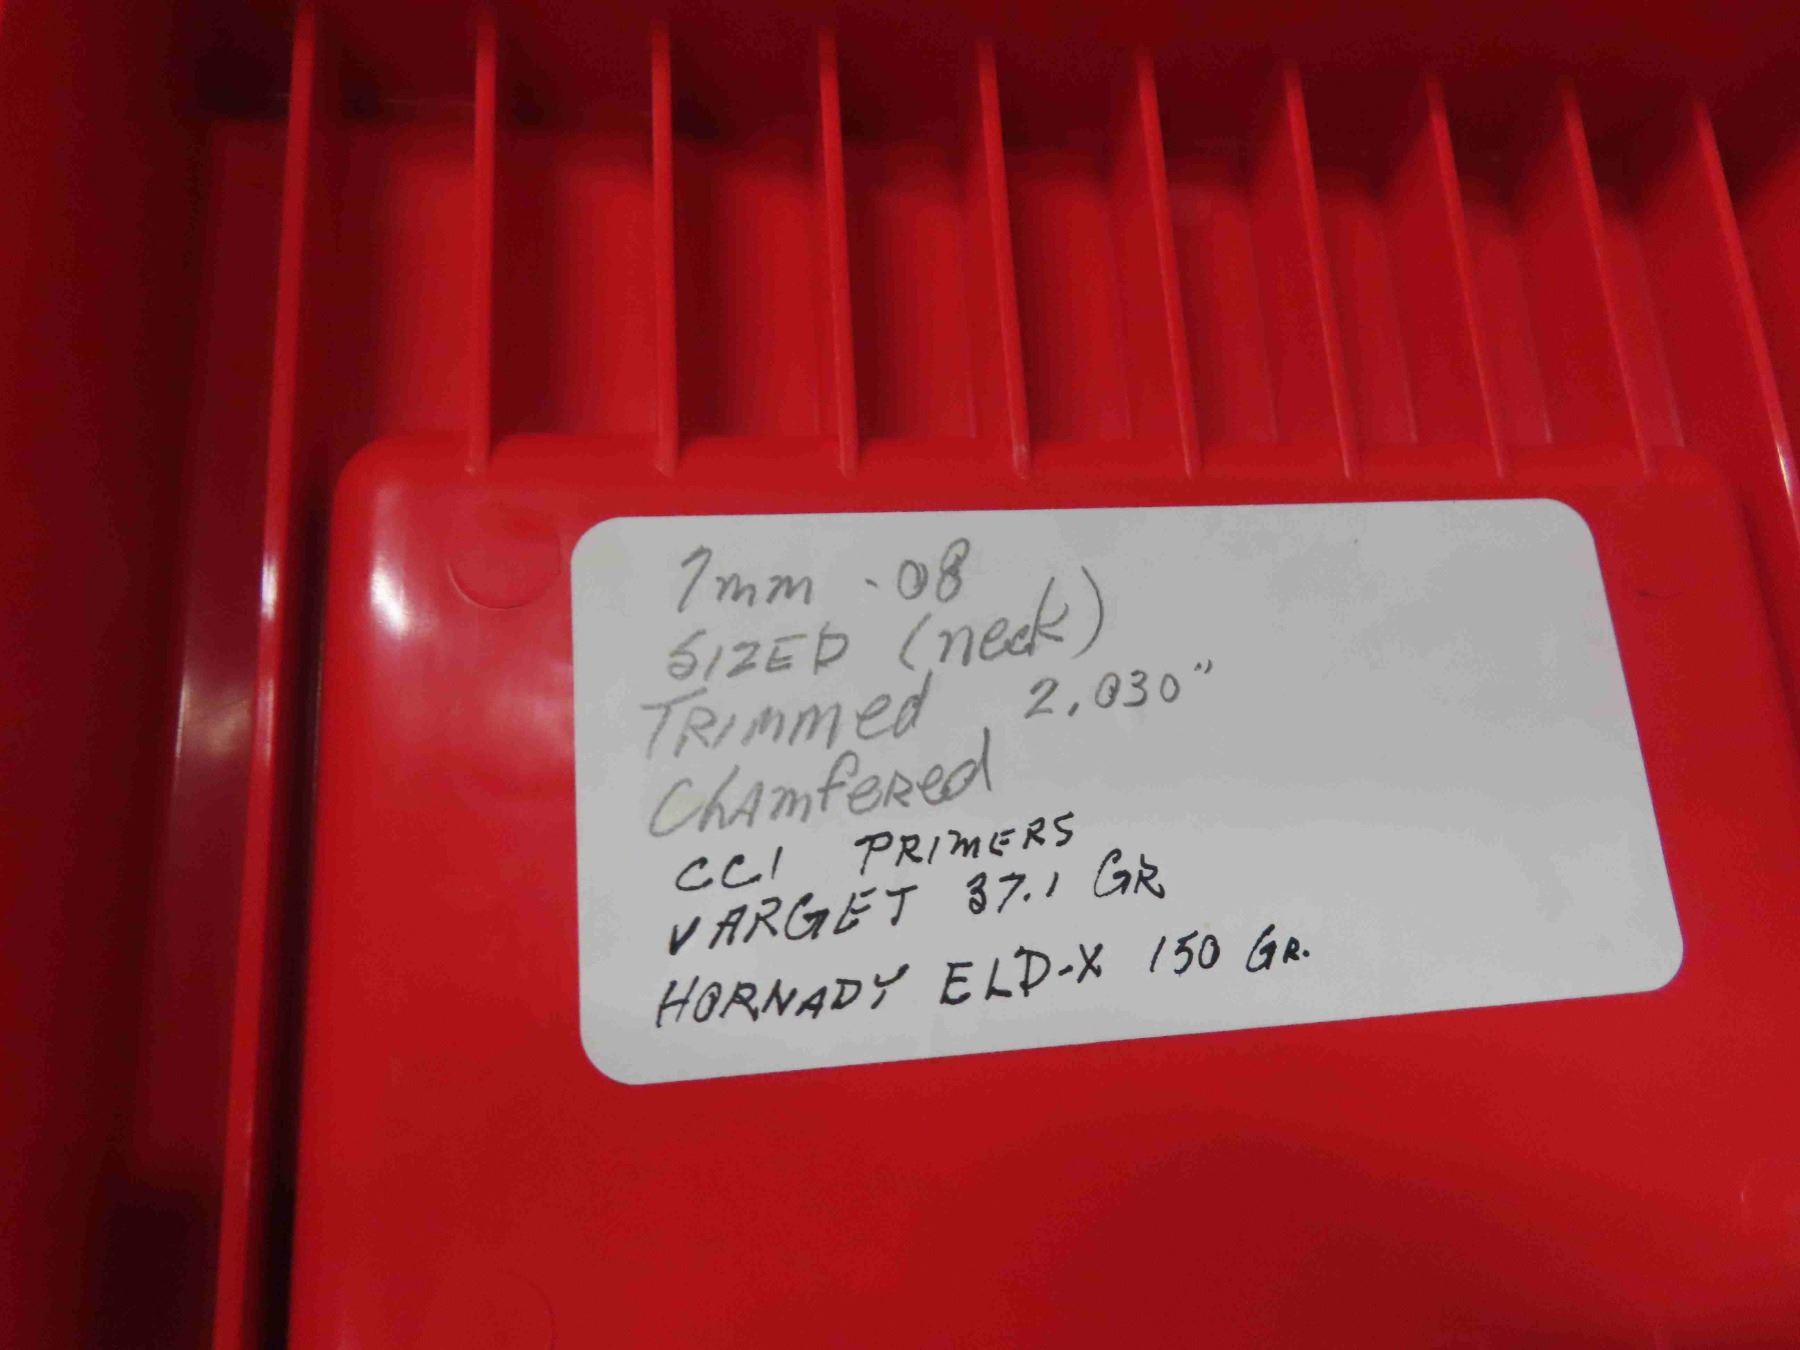 7mm -08
SIZED (neck)
TRIMMed 2.030"
ChAmfeRed
CCI PRIMERS
VARGET 37.1 GR
HORNADY ELD-X 150 GR.